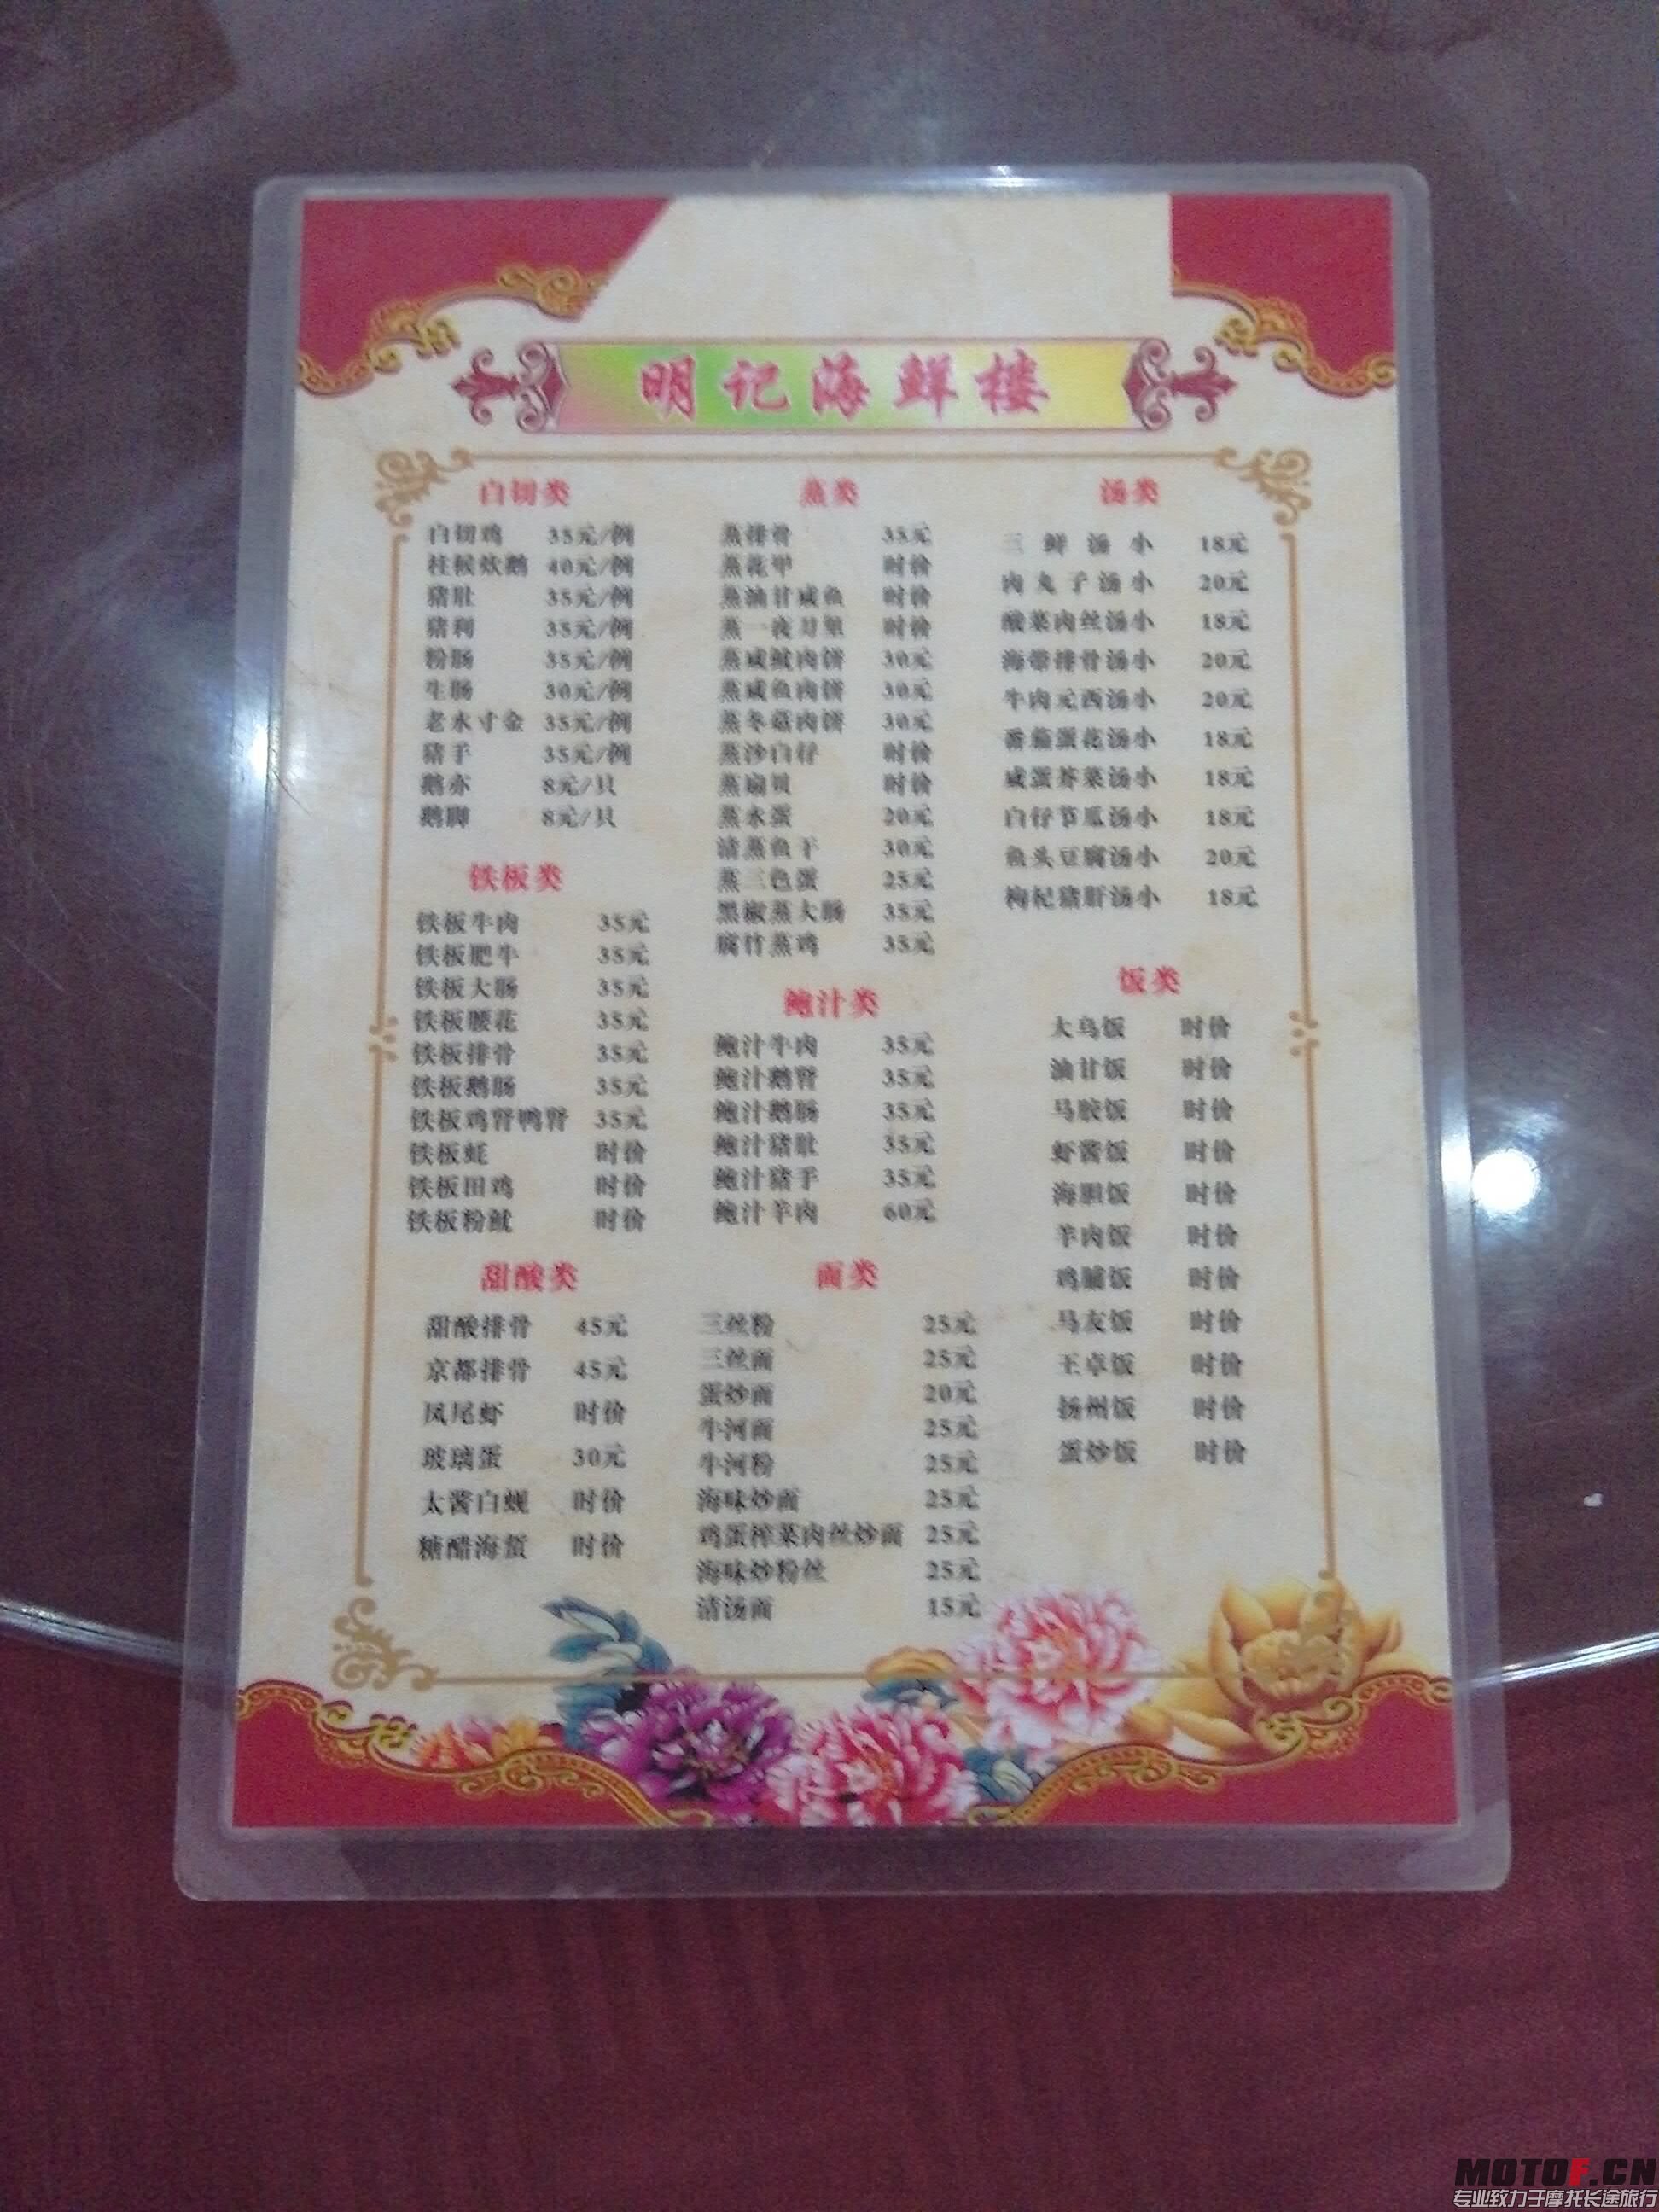 明记海鲜楼
白切类
白切鸡 35元/例
柱候炆鹅 40元/例
猪肚 35元/例
猪利 35元/例
粉肠 35元/例
生肠 30元/例
老水寸金 35元/例
猪手 35元/例
鹅亦 8元/只
鹅脚 8元/只
铁板类
铁板牛肉 35元
铁板肥牛 35元
铁板大肠 35元
铁板腰花 35元
铁板排骨 35元
铁板鹅肠 35元
铁板鸡肾鸭肾 35元
铁板蚝 时价
铁板田鸡 时价
铁板粉鱿 时价
甜酸类
甜酸排骨 45元
京都排骨 45元
凤尾虾 时价
玻璃蛋 30元
太酱白蚬 时价
糖醋海蜇 时价
蒸类
蒸排骨 35元
蒸花甲 时价
蒸油甘咸鱼 时价
蒸一夜刀 时价
蒸咸鱿肉饼 30元
蒸咸鱼肉饼 30元
蒸冬菇肉饼 30元
蒸沙白仔 时价
蒸扇贝 时价
蒸水蛋 20元
清蒸鱼干 30元
蒸三色蛋 25元
黑椒蒸大肠 35元
腐竹蒸鸡 35元
鲍汁类
鲍汁牛肉 35元
鲍汁鹅肾 35元
鲍汁鹅肠 35元
鲍汁猪肚 35元
鲍汁猪手 35元
鲍汁羊肉 60元
面类
三丝粉 25元
三丝面 25元
蛋炒面 20元
牛河面 25元
牛河粉 25元
海味炒面 25元
鸡蛋榨菜肉丝炒面 25元
海味炒粉丝 25元
清汤面 15元
汤类
三鲜汤小 18元
肉丸子汤小 20元
酸菜肉丝汤小 18元
海带排骨汤小 20元
牛肉元西汤小 20元
番茄蛋花汤小 18元
咸蛋芥菜汤小 18元
白仔节瓜汤小 18元
鱼头豆腐汤小 20元
枸杞猪肝汤小 18元
饭类
大乌饭 时价
油甘饭 时价
马胶饭 时价
虾酱饭 时价
海胆饭 时价
羊肉饭 时价
鸡脯饭 时价
马友饭 时价
王卓饭 时价
扬州饭 时价
蛋炒饭 时价
MOTOF.CN
专业致力于摩托长途旅行